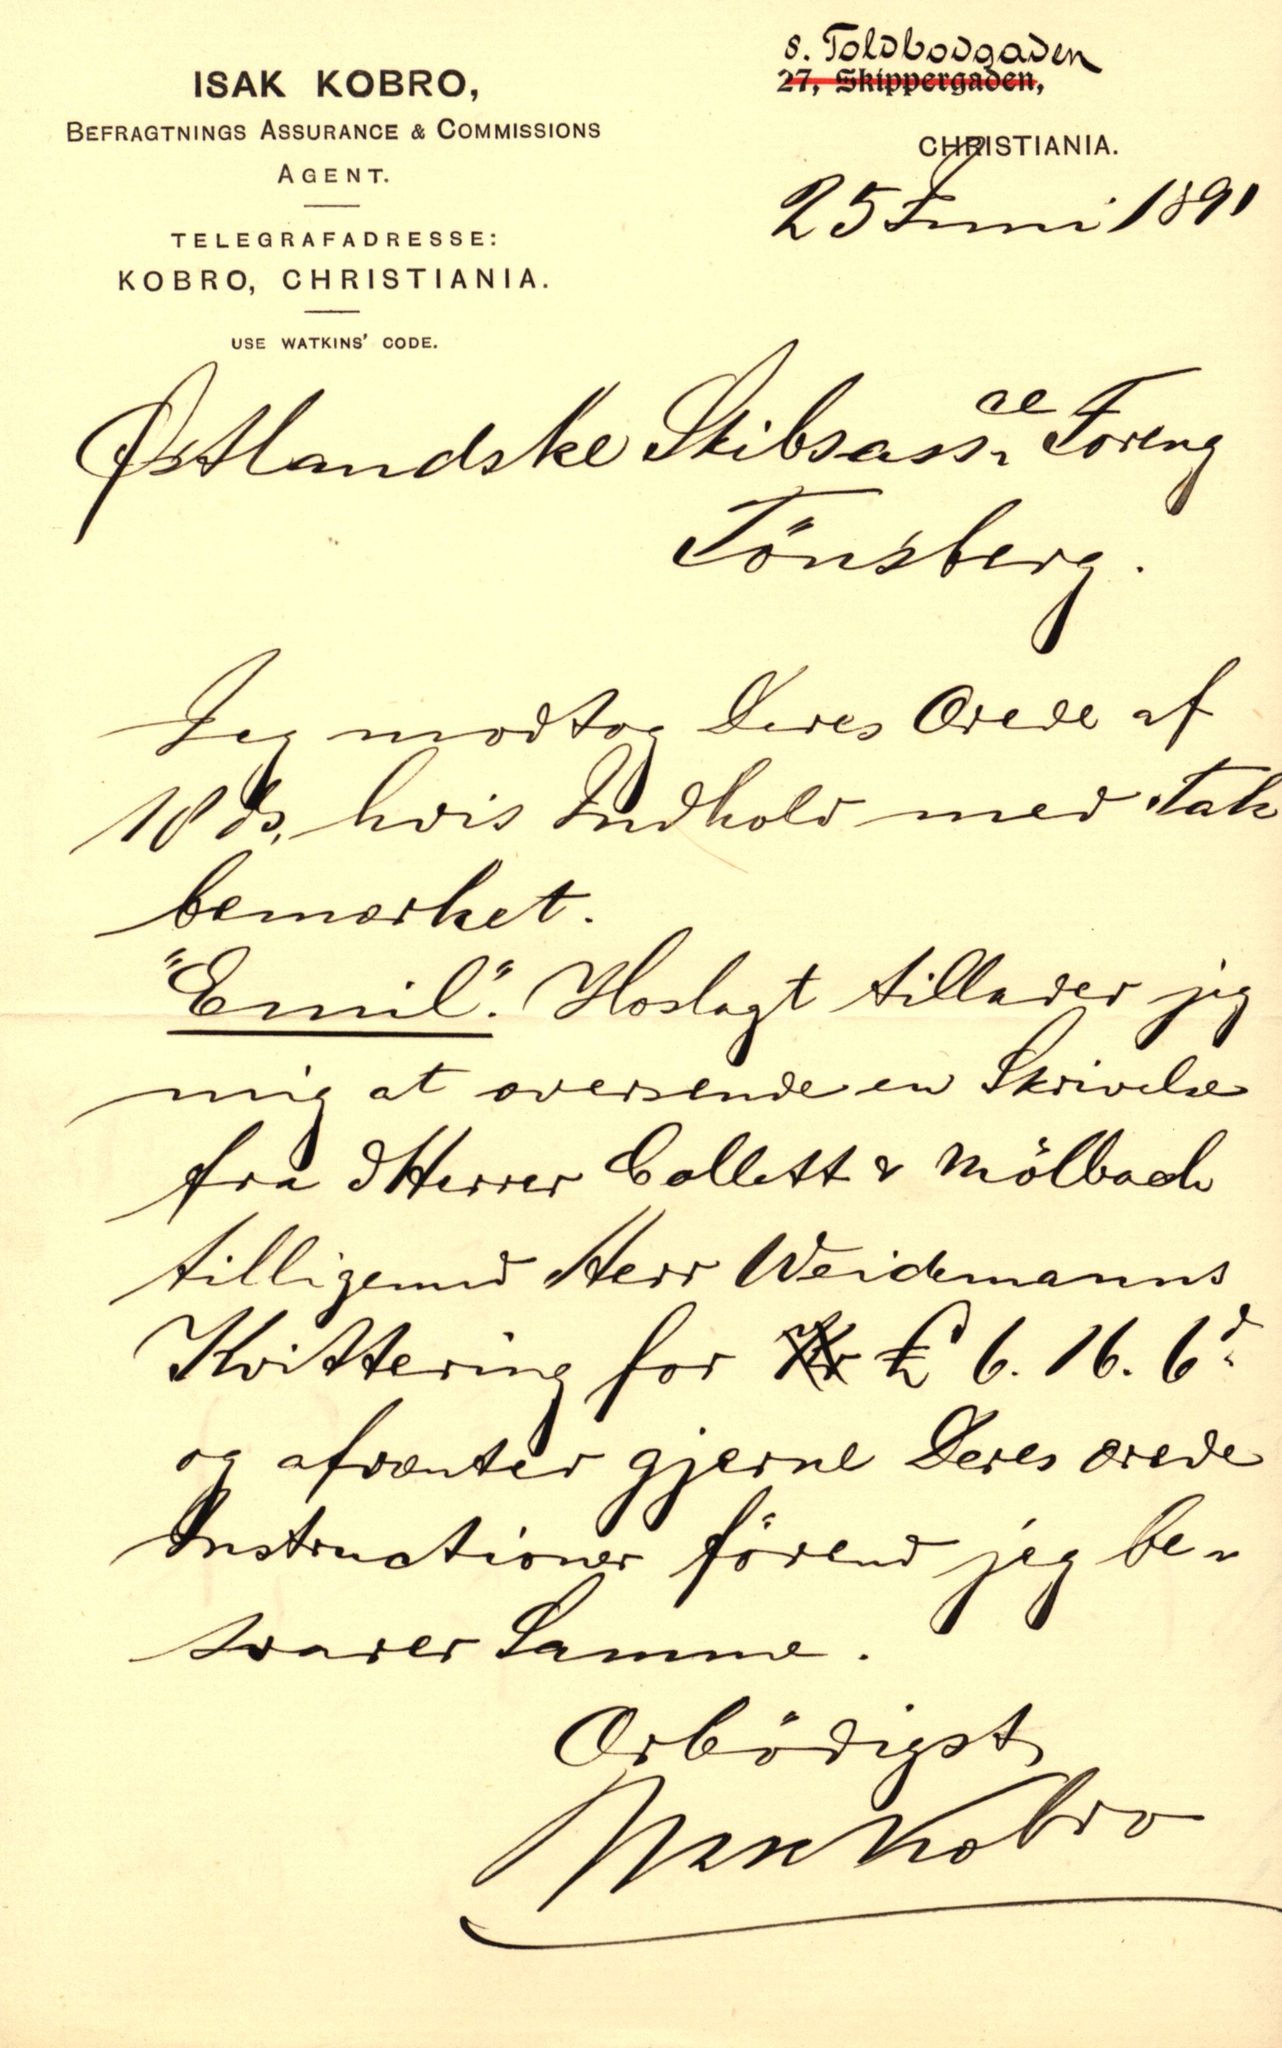 ISAK KOBRO,
BEFRAGTNINGS ASSURANCE & COMMISSIONS
AGENT.
TELEGRAFADRESSE:
KOBRO, CHRISTIANIA.
USE WATKINS' CODE.
8. Toldbodgaden
27, Skippergaden,
CHRISTIANIA.
25 Juni 1891
Østlandske Skibsassce Foreng
Tönsberg.
Jeg modtog Deres Ærede af
18 ds. hvis Indhold med Tak
bemærket.
"Emil". Hoslagt tillader jeg
mig at oversende en Skrivelse
fra d'Herrer Collett & Mölbach
tilligemed Herr Weidemanns
Kvittering for Kr £ 6. 16. 6d
og afventer gjerne Deres ærede
Instructioner förend jeg be-
svarer Samme.
Ærbödigst
Isak Kobro